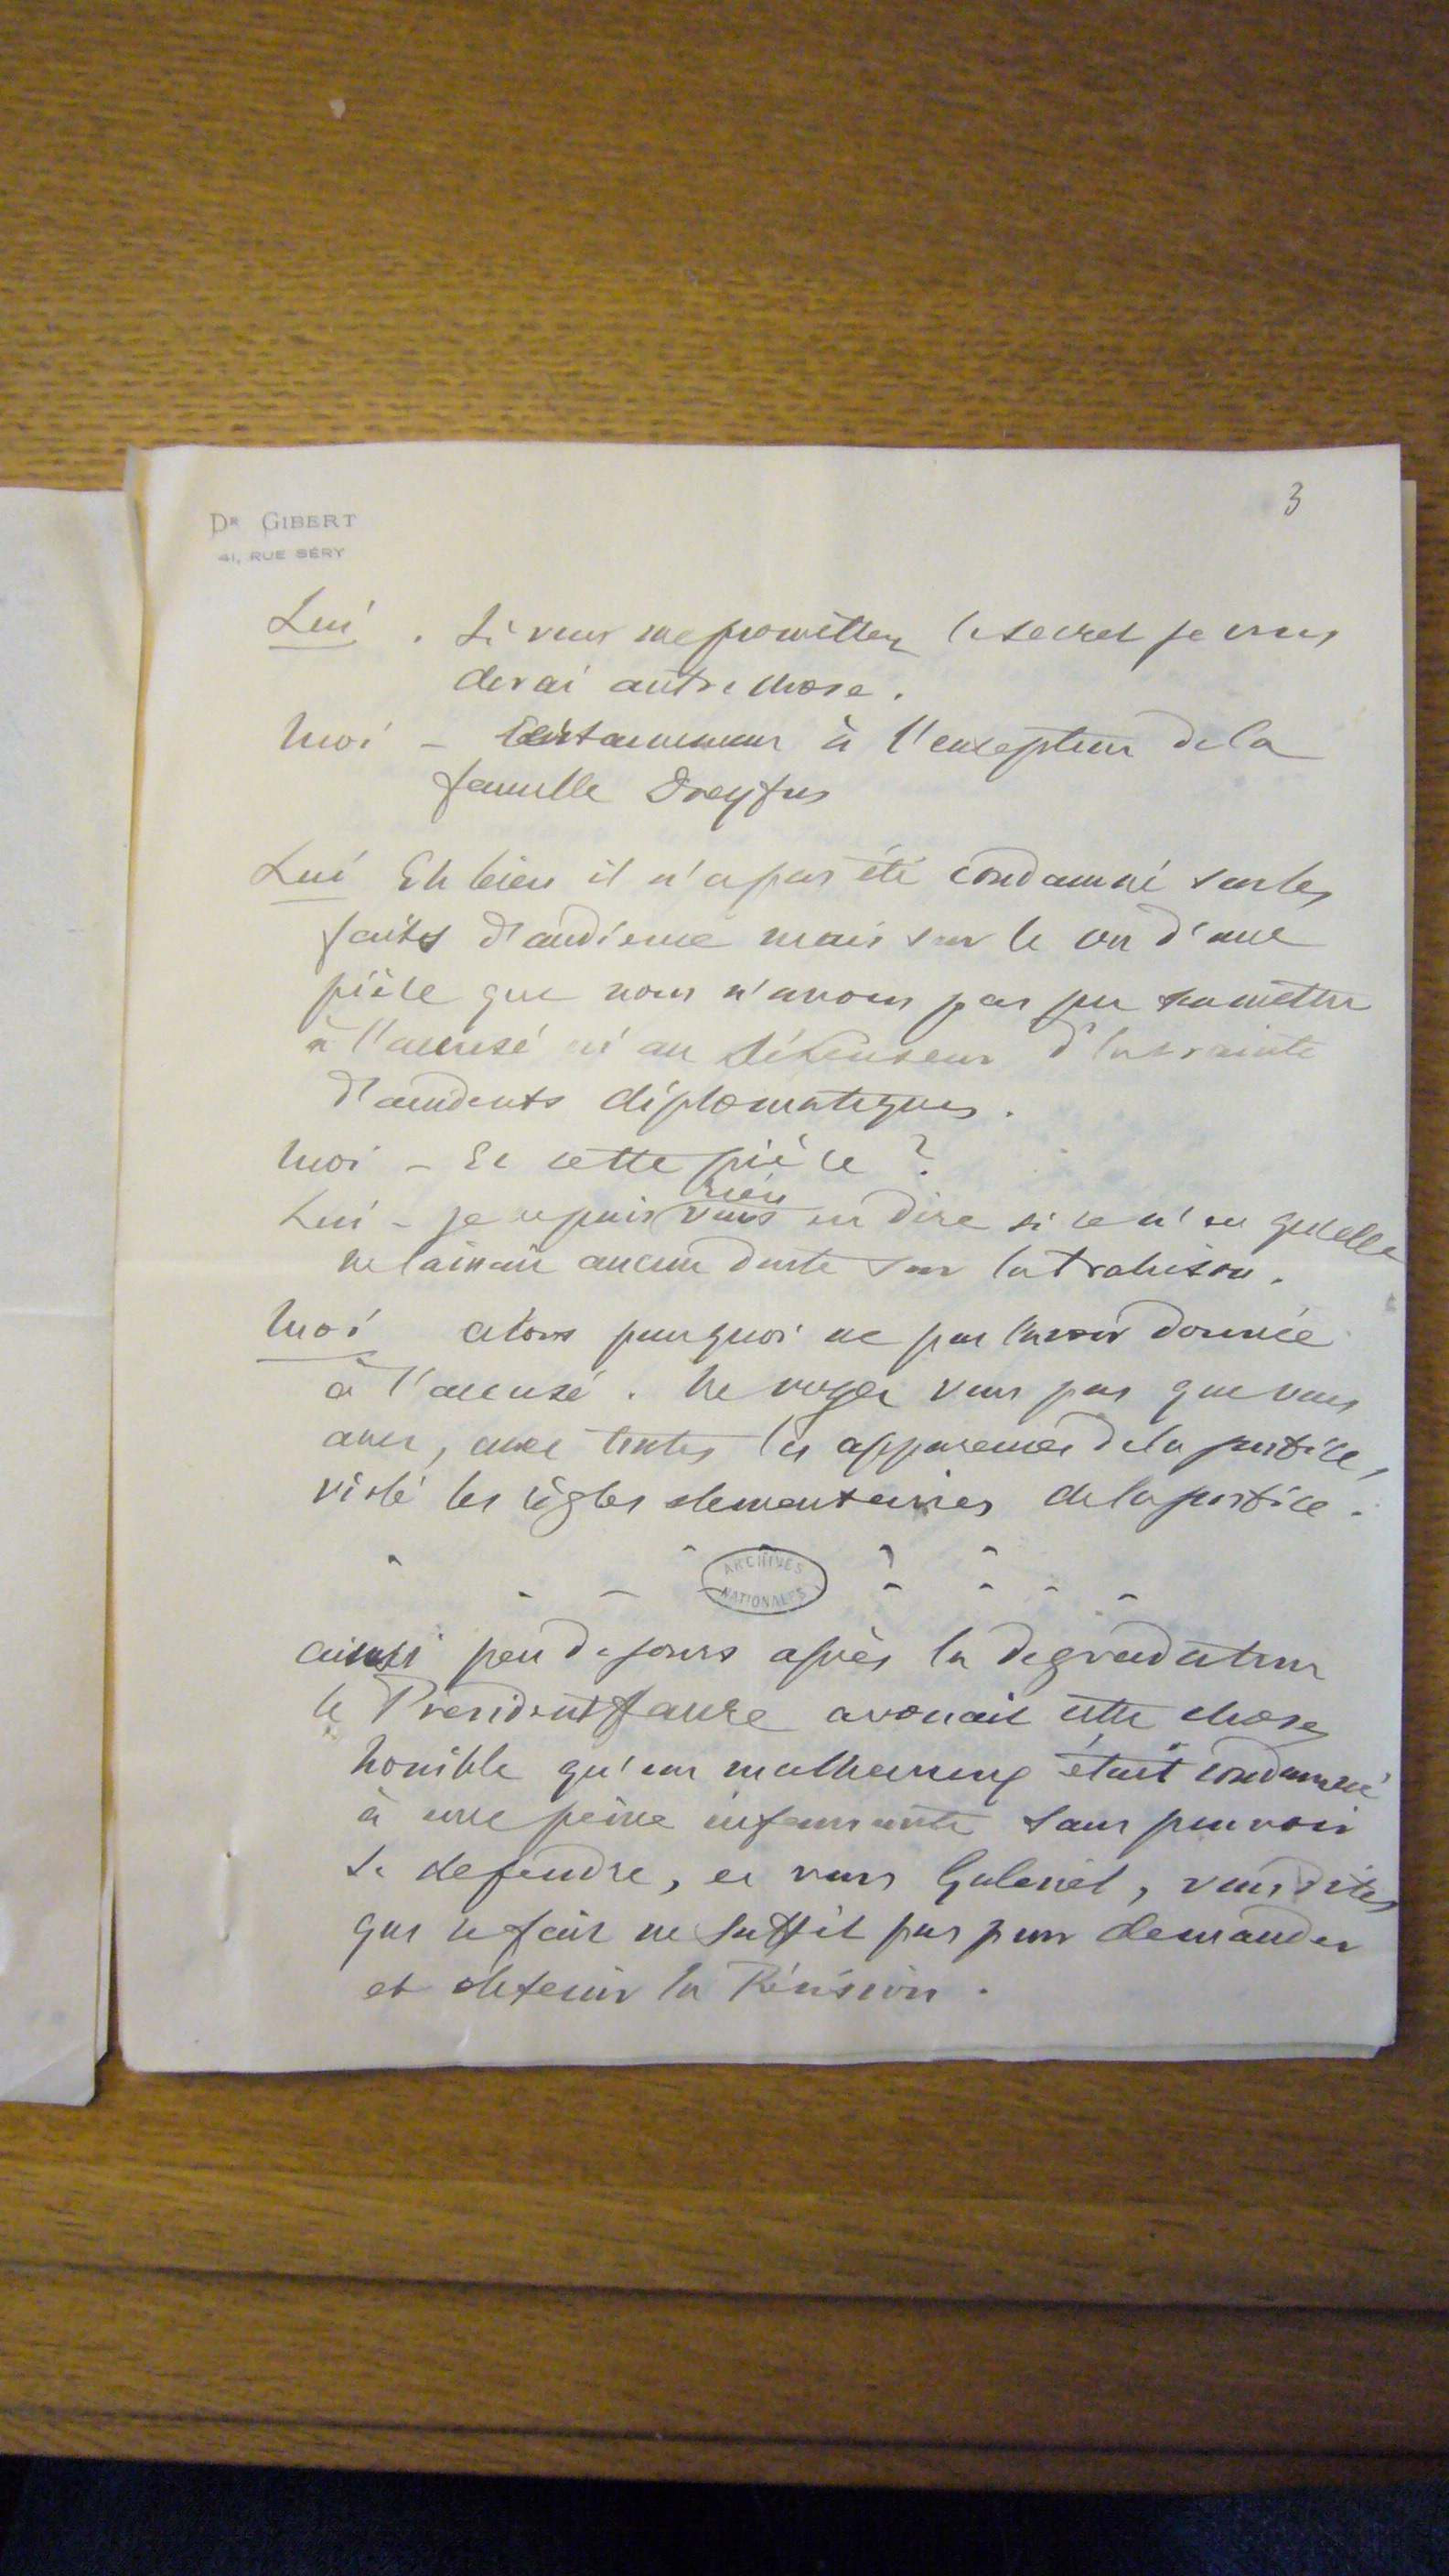 3
DR GIBERT
41, RUE SÉRY
Lui . Si vous me promettez le secret je vous
dirai autre chose.
Moi - Certainement à l'exception de la
famille Dreyfus
Lui Eh bien il n'a pas été condamné sur les
faits d'audience mais sur le vu d'une
pièce que nous n'avons pas pu soumettre
à l'accusé ni au défenseur d'
crainte
d'accidents diplomatiques.
Moi - Et cette pièce ?
rien
Lui - je ne puis vous en dire si ce n'est qu'elle
ne laissait aucun doute sur la trahison.
Moi alors pourquoi ne pas l'avoir donnée
à l'accusé. Ne voyez vous pas que vous
avez, avec toutes les apparences de la justice,
violé les règles elementaires de la justice.
ARCHIVES
NATIONALES
ainsi peu de jours après la degradation
le President Faure avouait cette chose
horrible qu'un malheureux était condamné
à une peine infamante sans pouvoir
se defendre, et vous Gabriel, vous dites
que ce fait ne suffit pas pour demander
et obtenir la Révision.